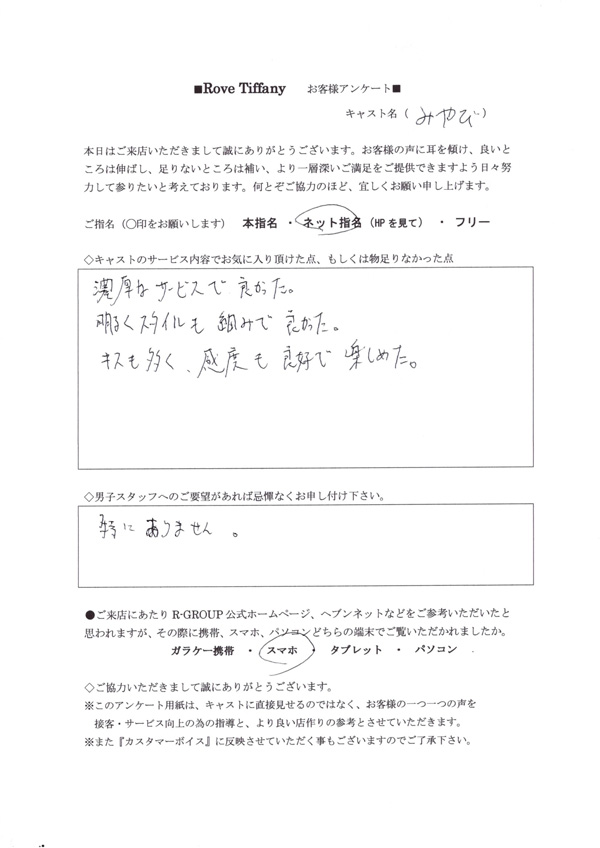 ■Rove Tiffany　お客様アンケート■
キャスト名（ みやび ）
本日はご来店いただきまして誠にありがとうございます。お客様の声に耳を傾け、良いと
ころは伸ばし、足りないところは補い、より一層深いご満足をご提供できますよう日々努
力して参りたいと考えております。何とぞご協力のほど、宜しくお願い申し上げます。
ご指名（〇印をお願いします）　本指名　・　ネット指名（HPを見て）　・　フリー
◇キャストのサービス内容でお気に入り頂けた点、もしくは物足りなかった点
濃厚なサービスで良かった。
明るくスタイルも 好みで良かった。
キスも多く、感度も良好で楽しめた。
◇男子スタッフへのご要望があれば忌憚なくお申し付け下さい。
特にありません。
●ご来店にあたり R-GROUP 公式ホームページ、ヘブンネットなどをご参考いただいたと
思われますが、その際に携帯、スマホ、パソコンどちらの端末でご覧いただかれましたか。
ガラケー携帯　・　スマホ　・　タブレット　・　パソコン
◇ご協力いただきまして誠にありがとうございます。
※このアンケート用紙は、キャストに直接見せるのではなく、お客様の一つ一つの声を
接客・サービス向上の為の指導と、より良い店作りの参考とさせていただきます。
※また『カスタマーボイス』に反映させていただく事もございますのでご了承下さい。